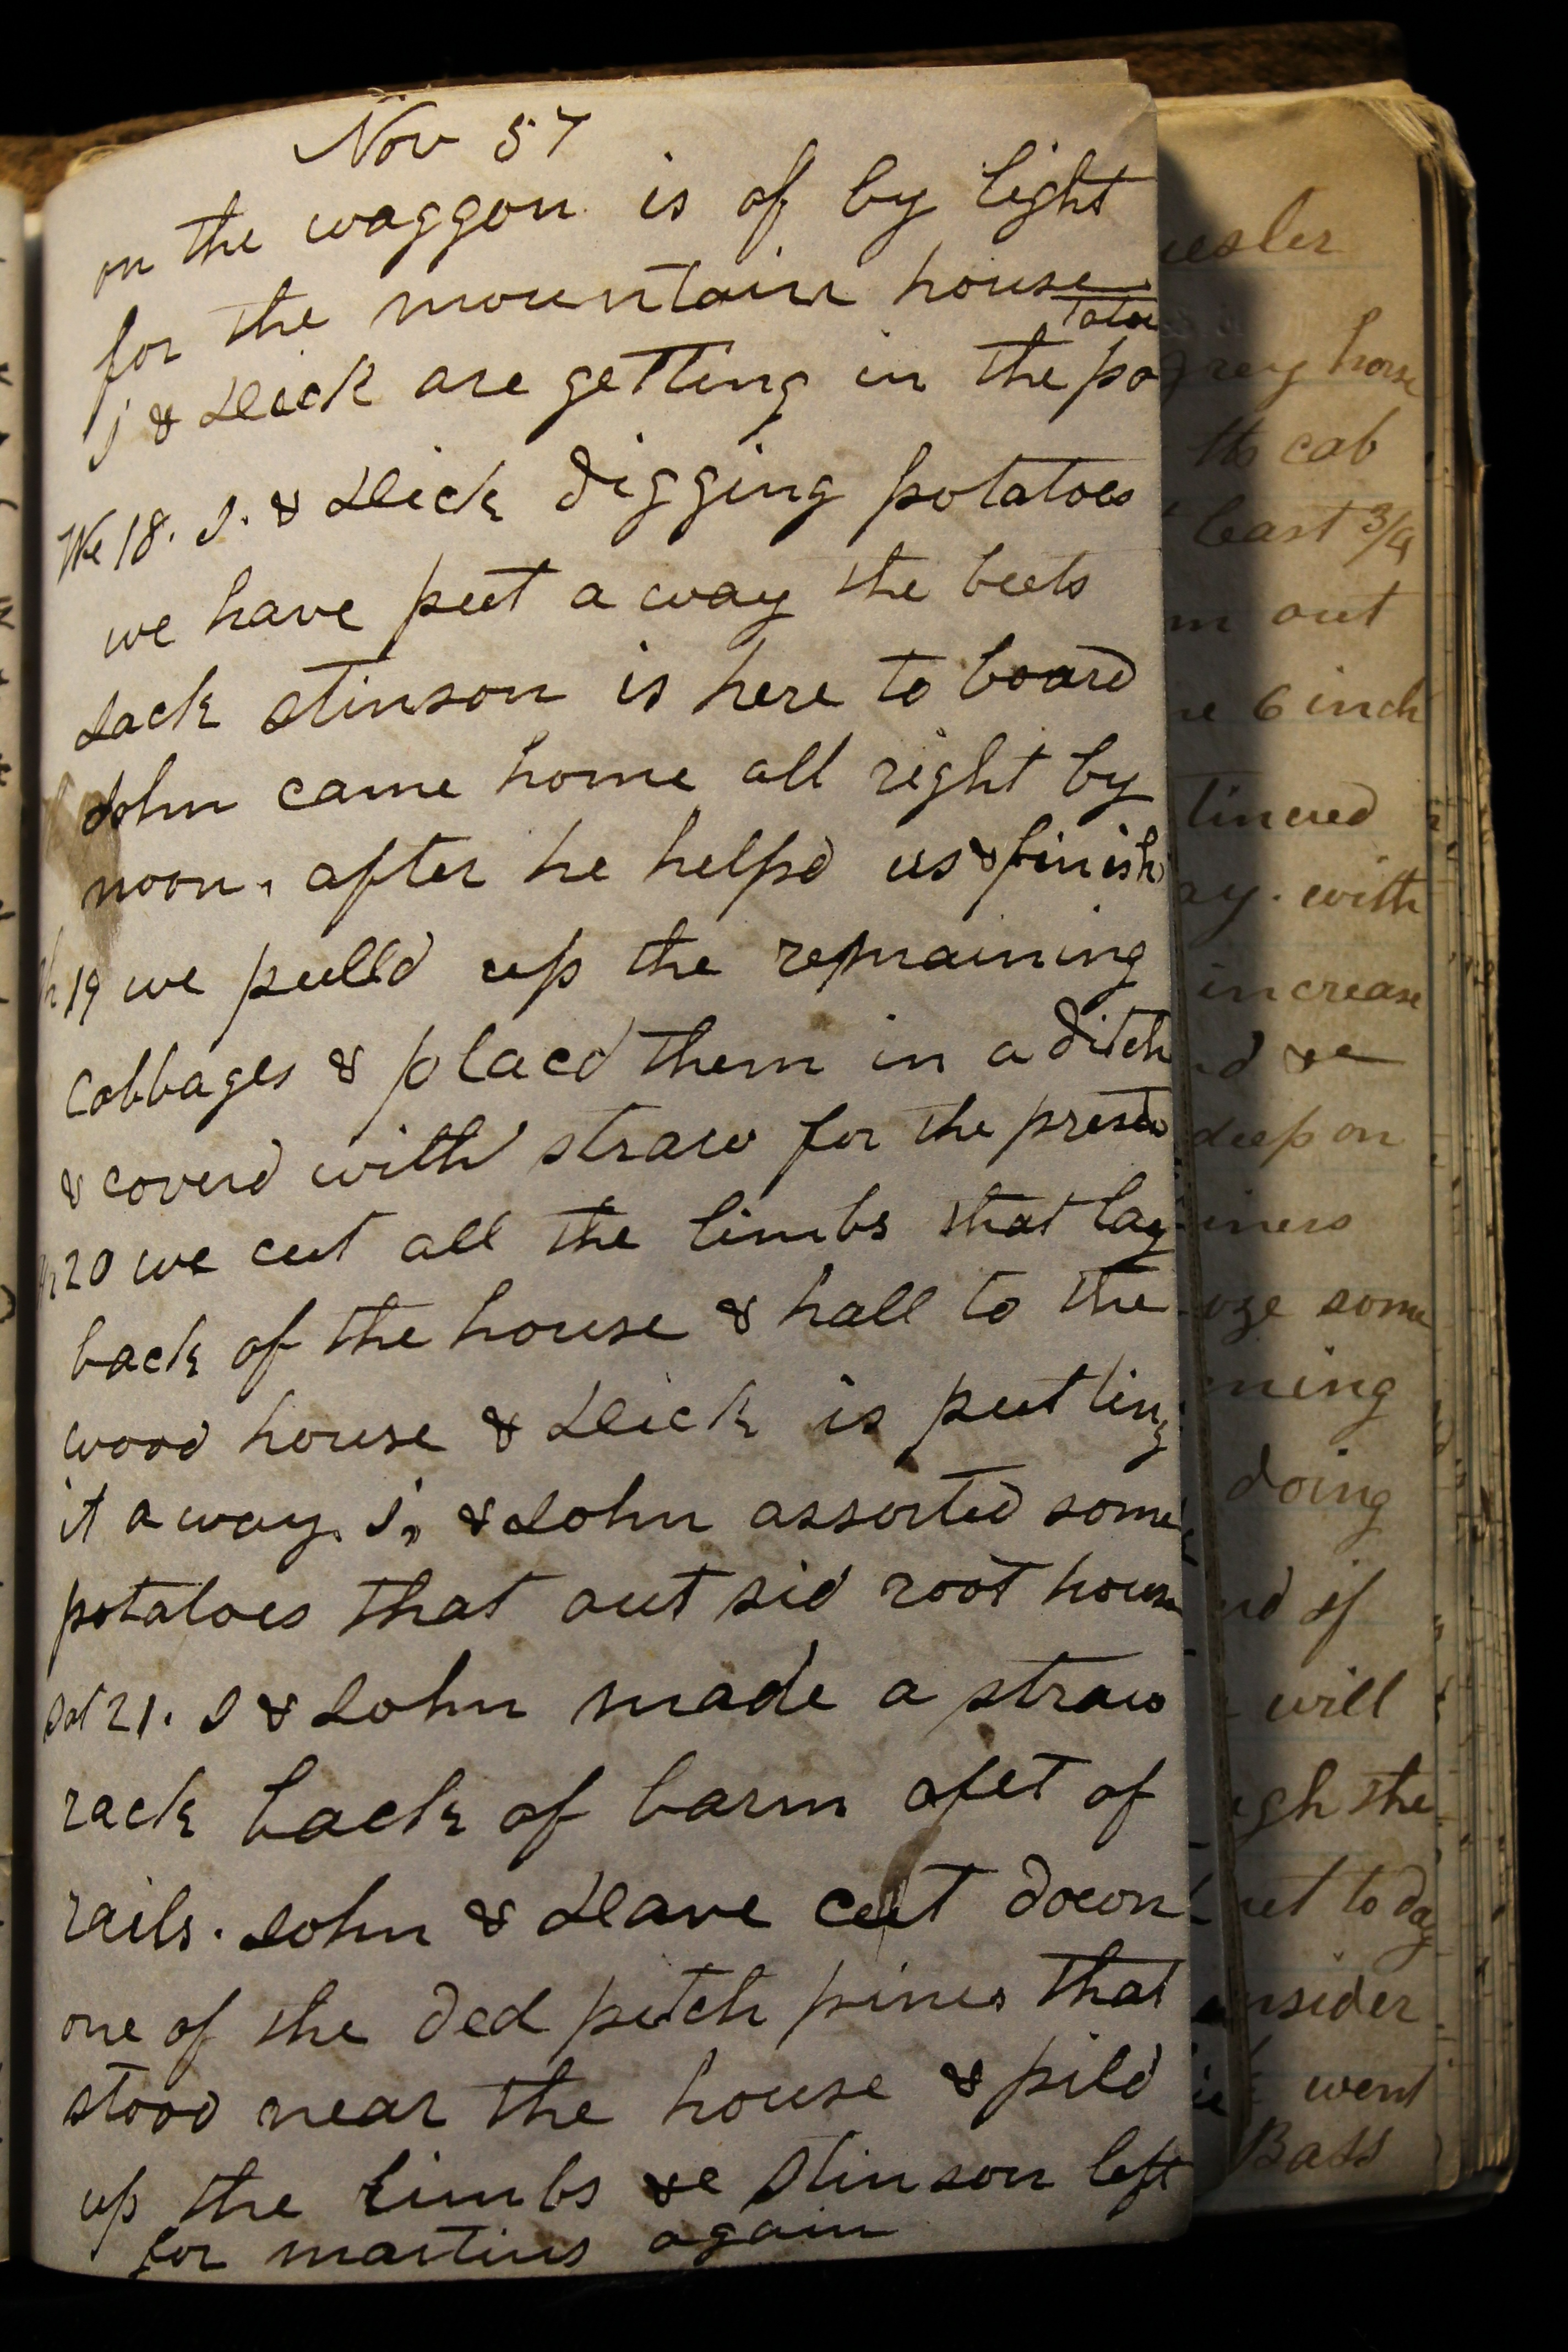 Nov 57
on the waggon is of by light
for the mountain house
J & Dick are getting in the potatoe
We 18. J. & Dick digging potatoes
we have put a way the beets
Jack stinson is here to board
John came home all right by
noon. after he helpd us & finish
19 we pulld up the remaining
Cabbages & placd them in a ditch
& coverd with straw for the present
20 we cut all the limbs that lay
back of the house & hall to the
wood house & Dick is putting
it a way. J. & John assorted some
potatoes that out sid root house
Sat 21. J & John made a straw
rack back of barn ofet of
rails. John & Dave cut down
one of the ded pitch pines that
stood near the house & pild
up the limbs &c Stinson left
for martins again
grey horse
cab
least 3/4
out
6 inch
with
increase
&c
deep on
some
doing
if
will
the
to day
went
Bass